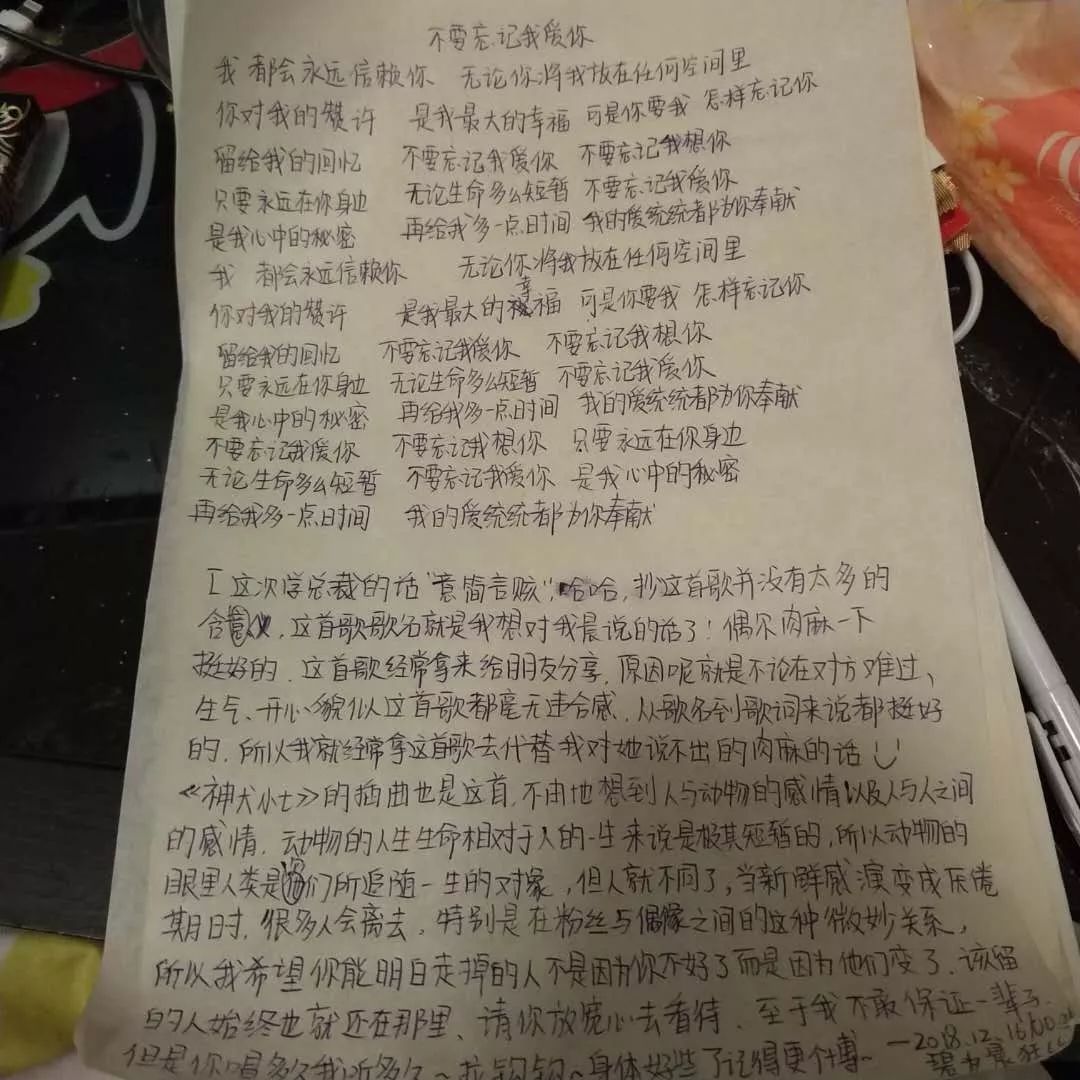 不要忘记我爱你
我 都会永远信赖你 无论你将我放在任何空间里
你对我的赞许 是我最大的幸福 可是你要我 怎样忘记你
留给我的回忆 不要忘记我爱你 不要忘记我想你
只要永远在你身边 无论生命多么短暂 不要忘记我爱你
是我心中的秘密 再给我多一点时间 我的爱统统都为你奉献
我 都会永远信赖你 无论你将我放在任何空间里
你对我的赞许 是我最大的幸福 可是你要我 怎样忘记你
留给我的回忆 不要忘记我爱你 不要忘记我想你
只要永远在你身边 无论生命多么短暂 不要忘记我爱你
是我心中的秘密 再给我多一点时间 我的爱统统都为你奉献
不要忘记我爱你 不要忘记我想你 只要永远在你身边
无论生命多么短暂 不要忘记我爱你 是我心中的秘密
再给我多一点时间 我的爱统统都为你奉献
[这次学总裁的话"意简言赅",哈哈,抄这首歌并没有太多的
含意,这首歌歌名就是我想对我晨说的话了!偶尔肉麻一下
挺好的.这首歌经常拿来给朋友分享,原因呢就是不论在对方难过、
生气、开心貌似这首歌都毫无违合感.从歌名到歌词来说都挺好
的.所以我就经常拿这首歌去代替我对她说不出的肉麻的话
《神犬小七》的插曲也是这首.不由地想到人与动物的感情以及人与人之间
的感情.动物的人生生命相对于人的一生来说是极其短暂的,所以动物的
眼里人类是他们所追随一生的对象,但人就不同了,当新鲜感演变成厌倦
期时.很多人会离去.特别是在粉丝与偶像之间的这种微妙关系,
所以我希望你能明白走掉的人不是因为你不好了而是因为他们变了.该留
的人始终也就还在那里、请你放宽心去看待.至于我不敢保证一辈子.
但是你唱多久我听多久~拉钩钩~身体好些了记得更个博~
—2018.12.16